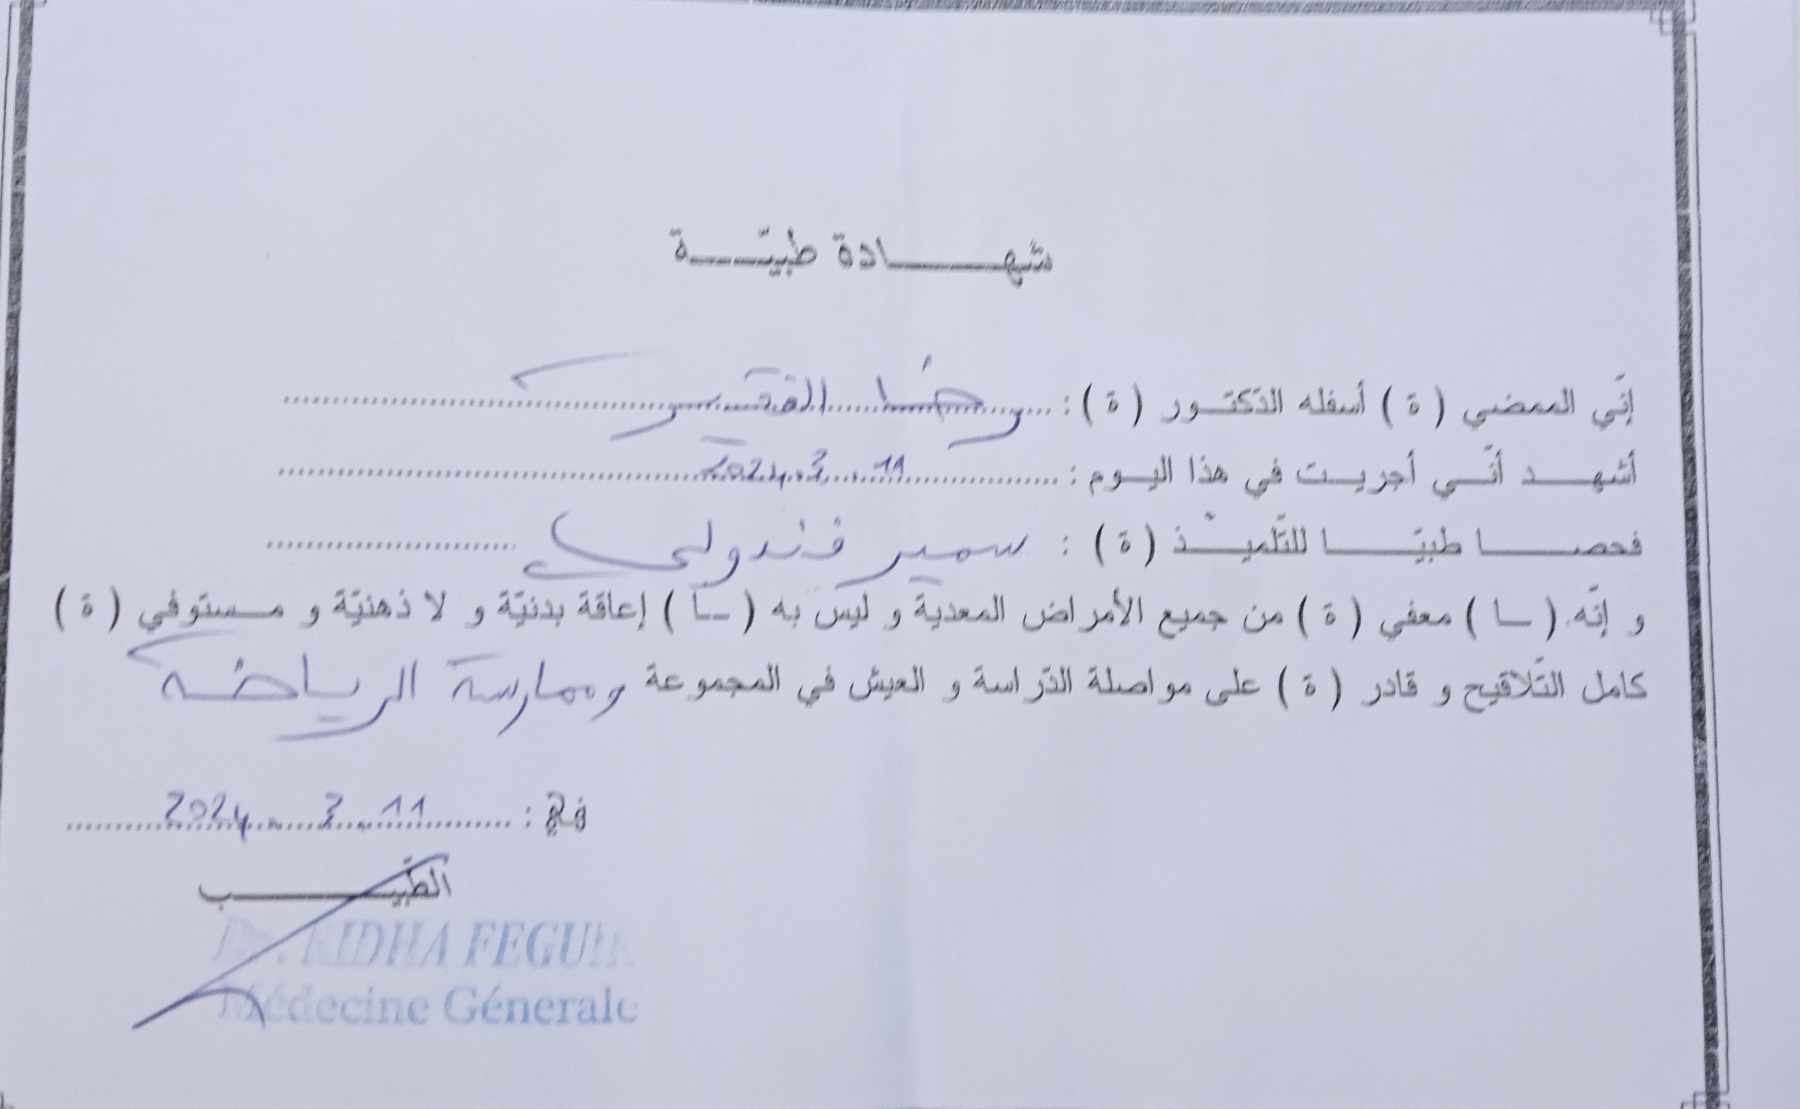 شهـــــادة طبيّـــة
إنّي الممضي ( ة ) أسفله الدّكتـور ( ة ) : رضا الفقير
أشهـــد أنّـي أجريـت في هذا اليـوم : 11 . 3 . 2024
فحصـــا طبيّـــا للتّلميـــذ ( ة ) : سمير فندولي
و إنّه ( ـا ) معفي ( ة ) من جميع الأمراض المعدية و ليس به ( ـا ) إعاقة بدنيّة و لا ذهنيّة و مستوفي ( ة )
كامل التّلاقيح و قادر ( ة ) على مواصلة الدّراسة و العيش في المجموعة وممارسة الرياضة
في : 11 . 3 . 2024
الطّبيـــب
Dr. RIDHA FEGUIR
Médecine Génerale